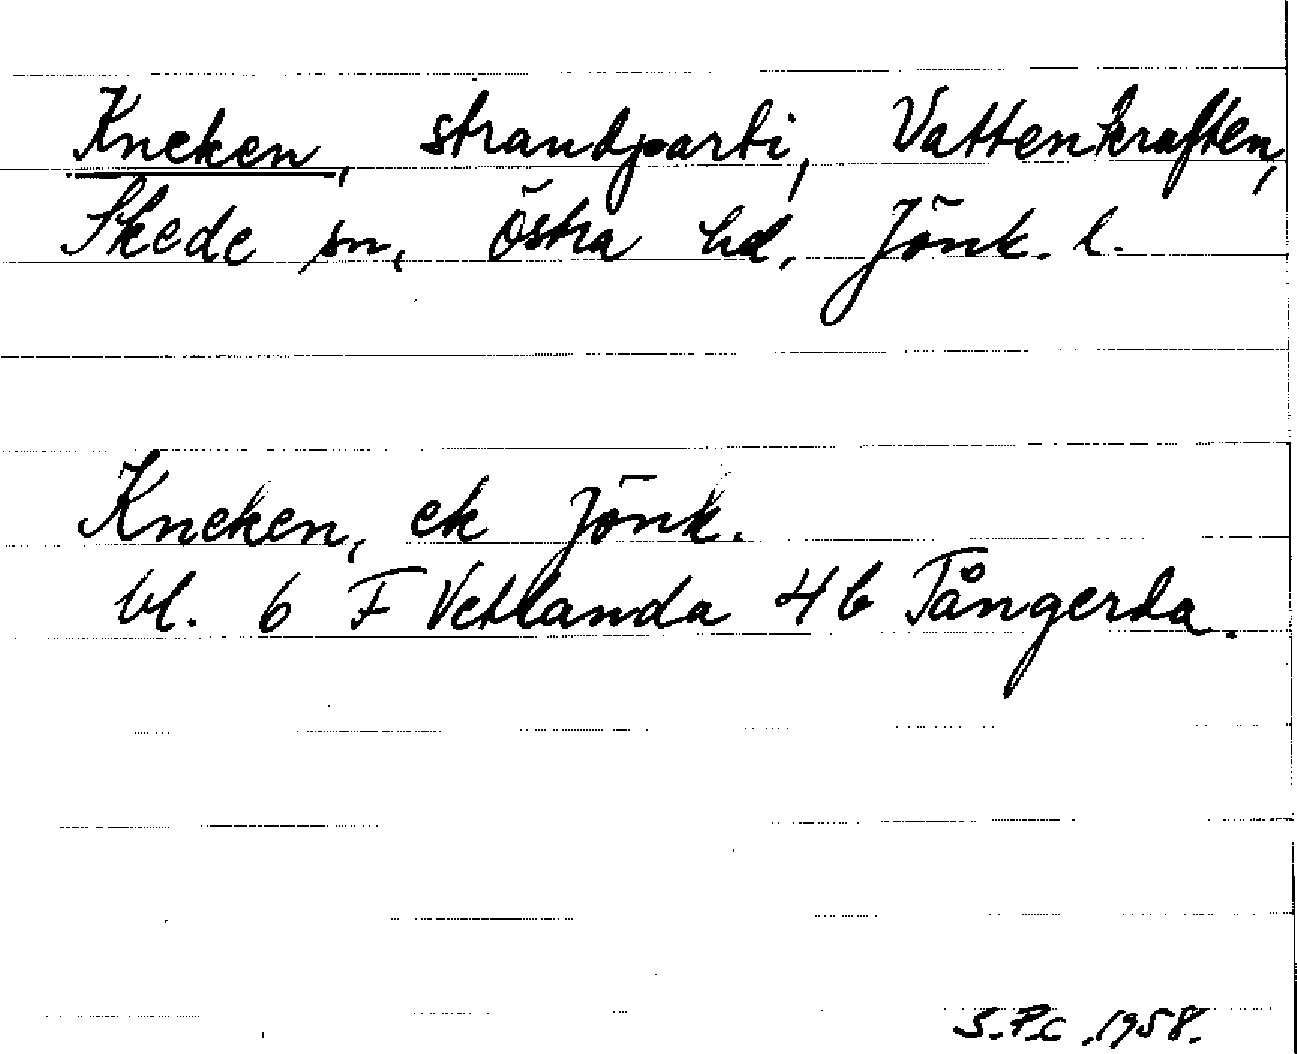 Kneken, strandparti, Vattenkraften,
Skede sn, Östra hd, Jönk. l.
Kneken, ek Jönk.
bl. 6 F Vetlanda 4b Tångerda.
S.P.C. 1958.